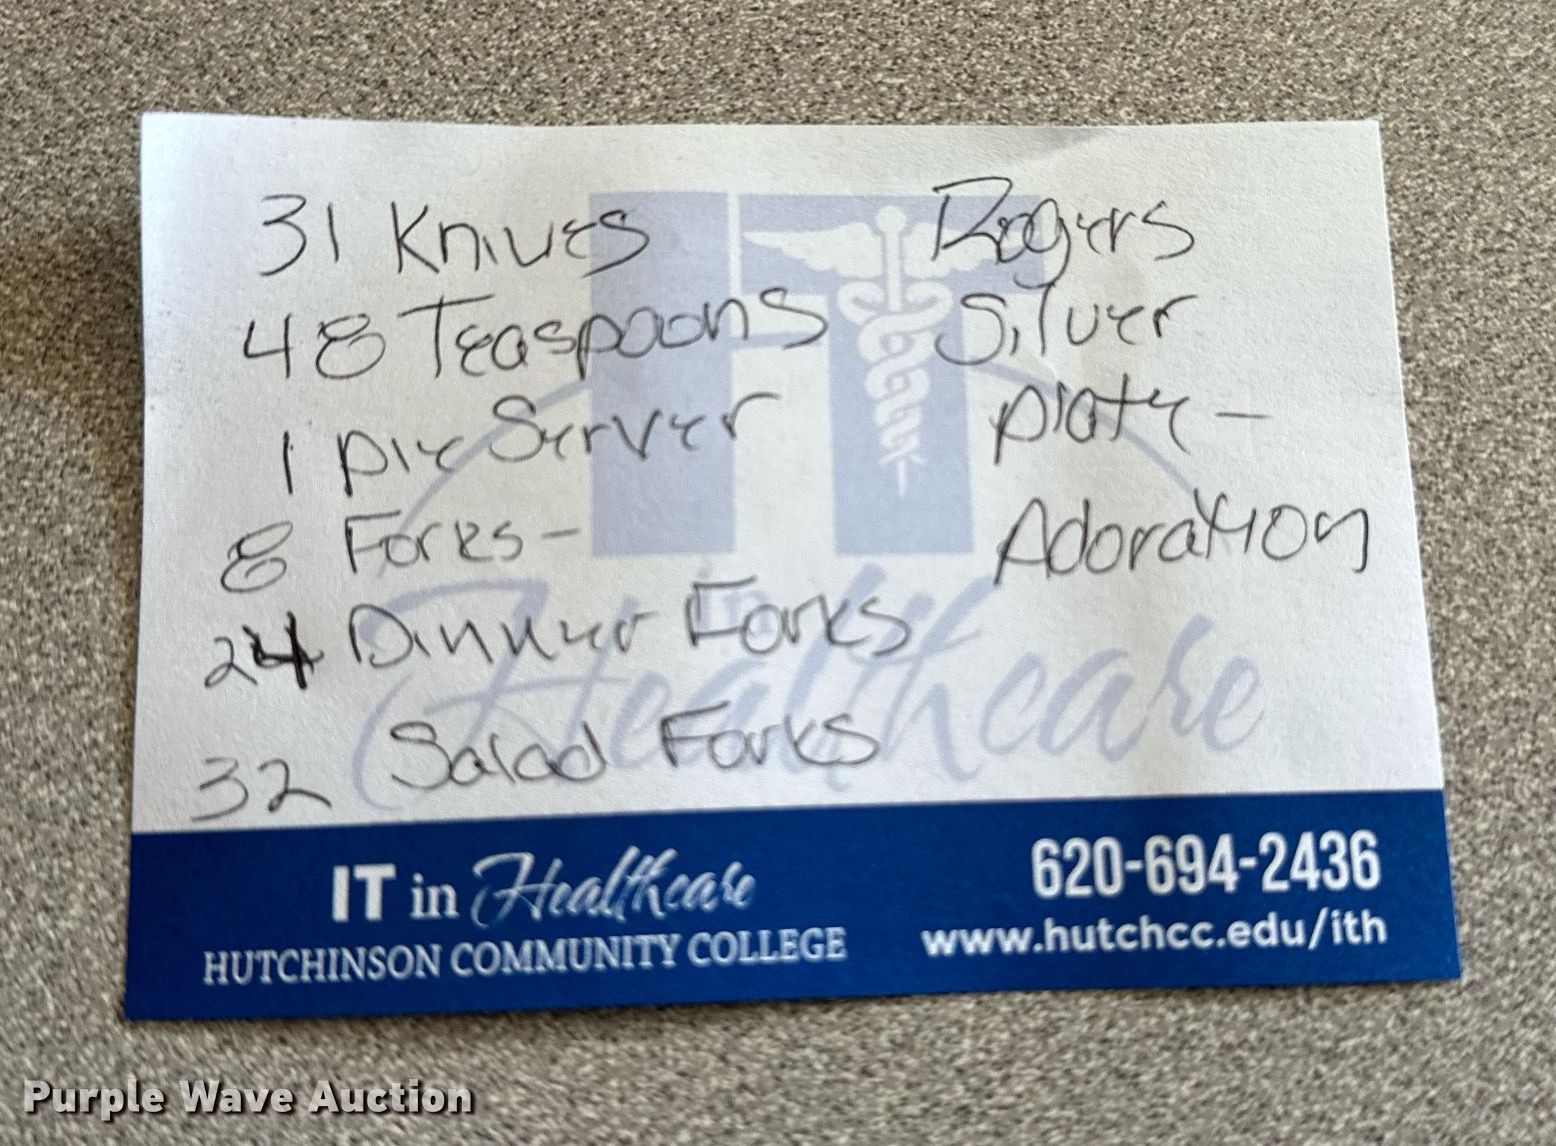 31 Knives
48 Teaspoons
1 pie Server
8 Forks-
24 Dinner Forks
32 Salad Forks
Rogers
Silver
plate-
Adoration
IT
Healthcare
IT in Healthcare
HUTCHINSON COMMUNITY COLLEGE
620-694-2436
www.hutchcc.edu/ith
Purple Wave Auction